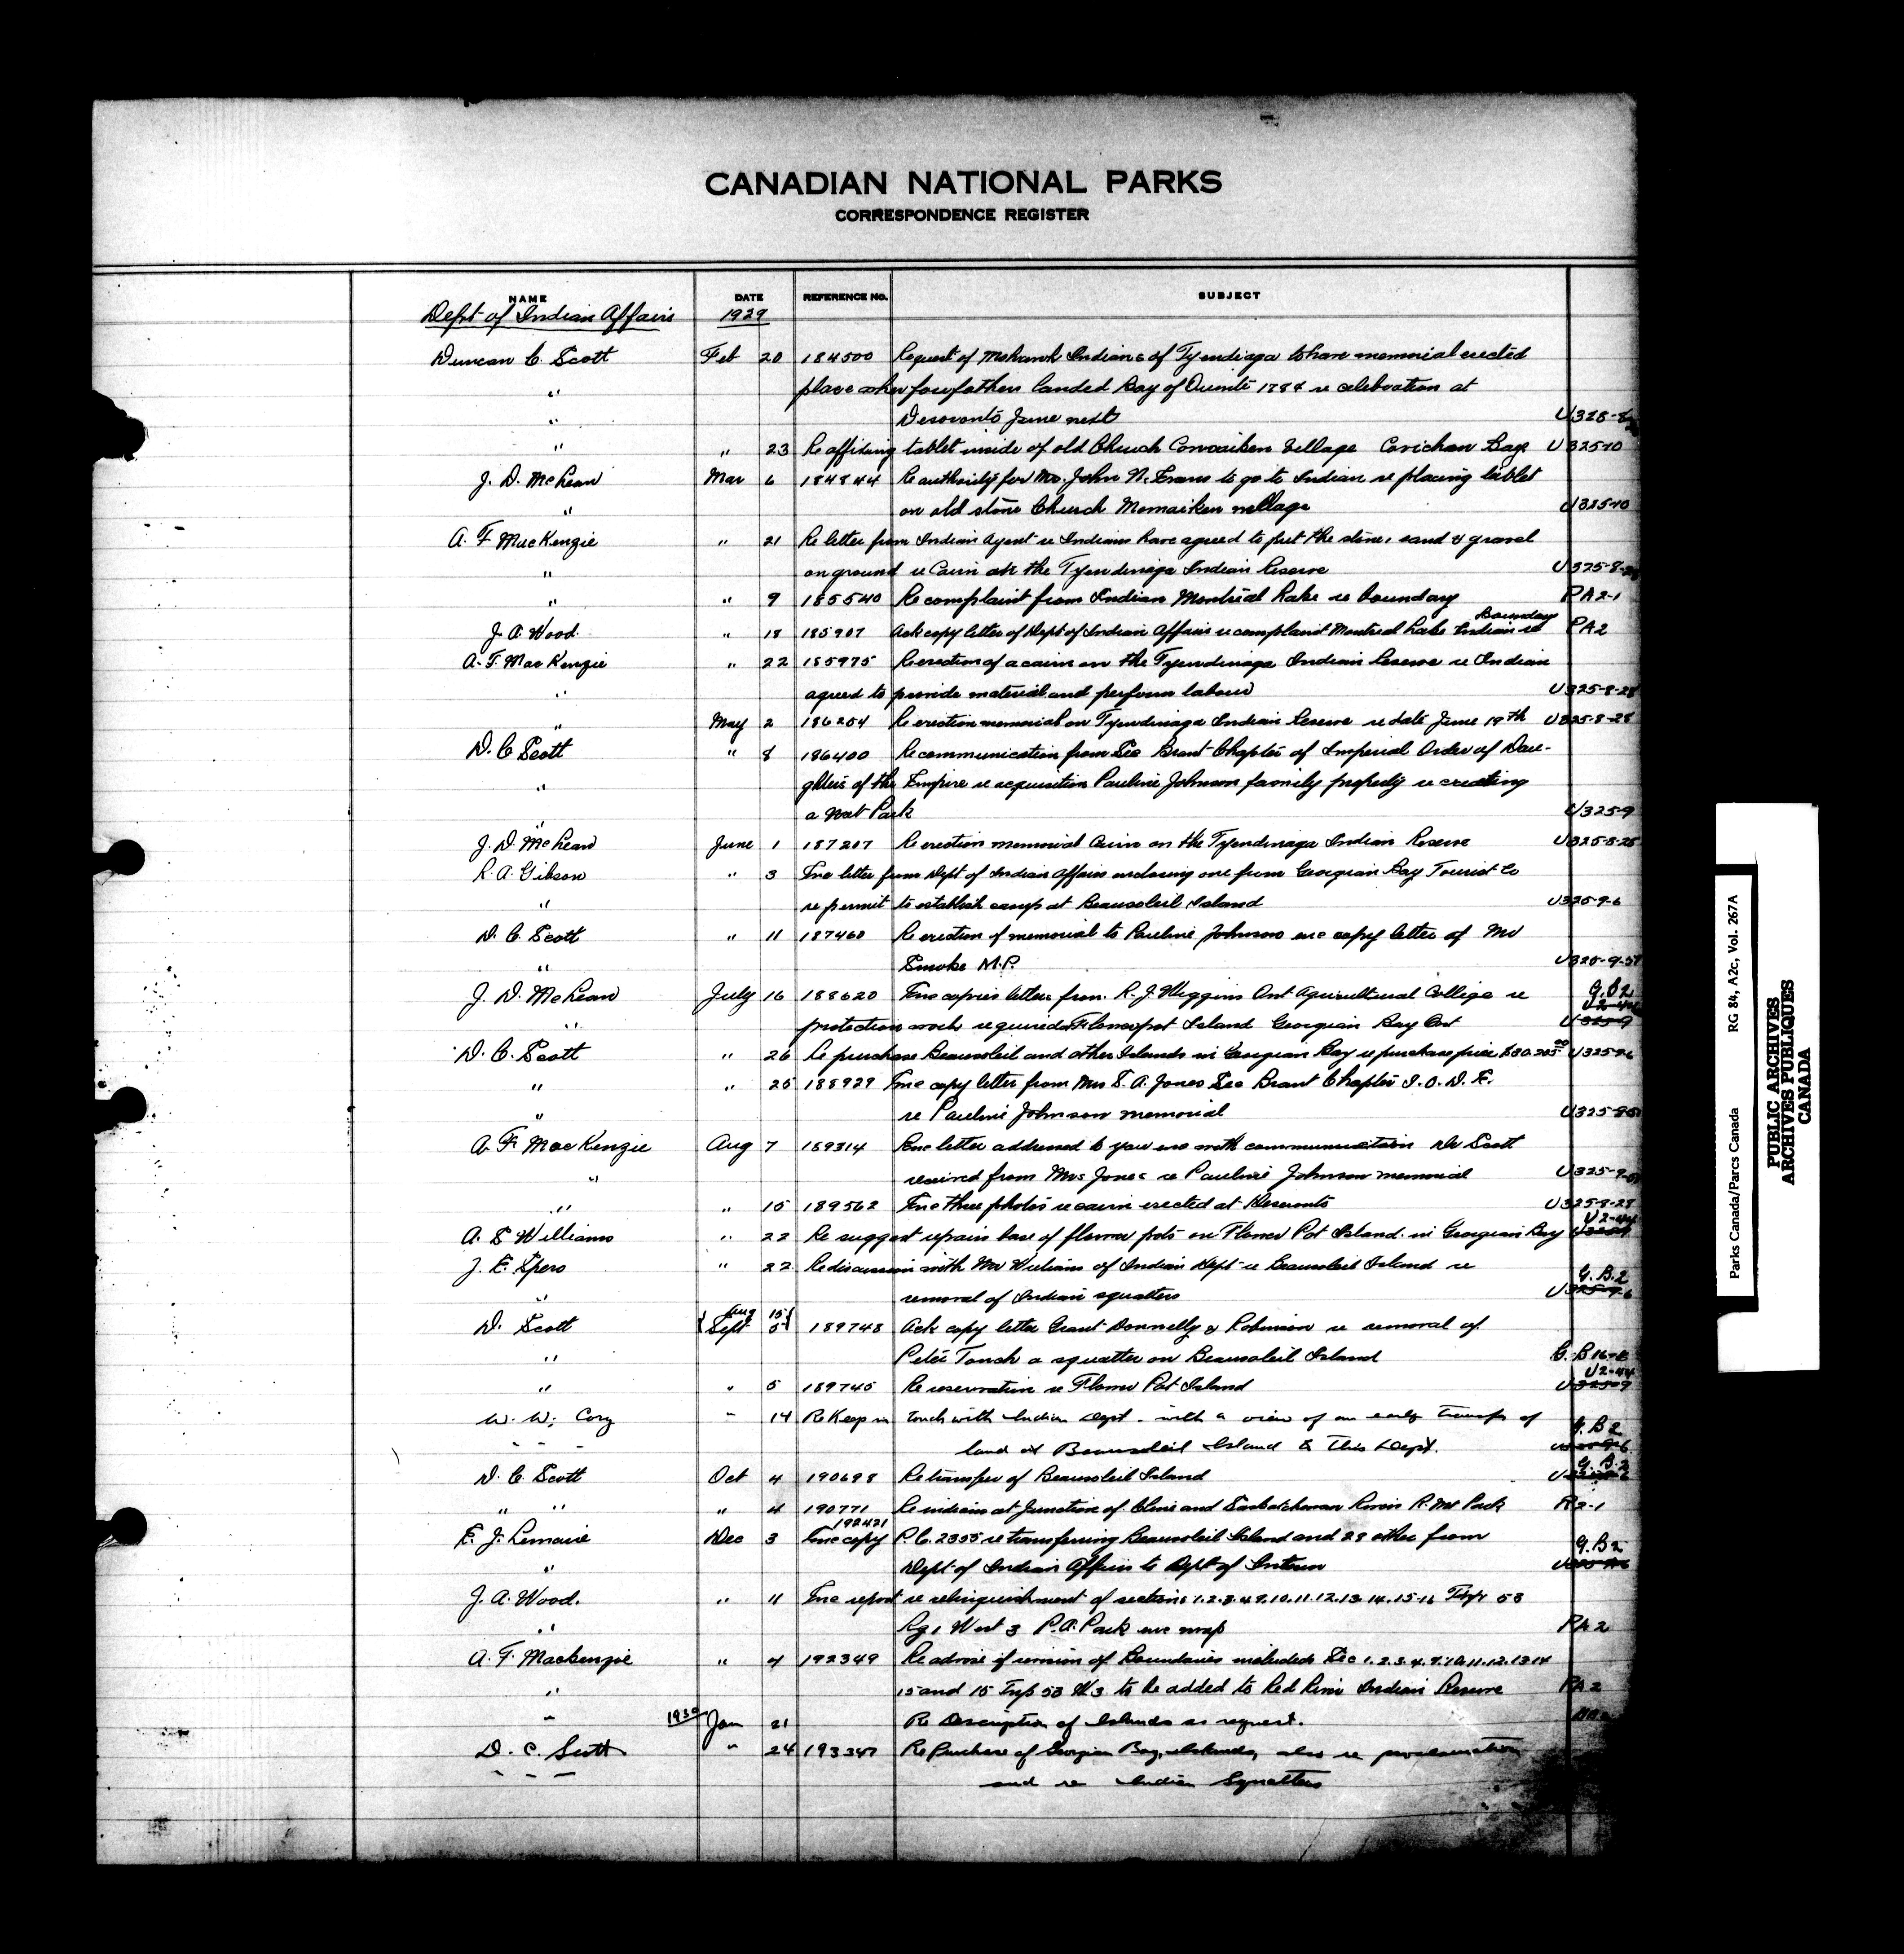 CANADIAN NATIONAL PARKS
CORRESPONDENCE REGISTER
NAME DATE REFERENCE NO. SUBJECT
Dept of Indian Affairs 1929
Duncan C. Scott Feb 20 184500 Request of Mohawk Indians of Tyendiaga to have memorial erected
" place when forefathers landed Bay of Quinte 1784 re celebration at
" Deseronto June next U325-8-
" " 23 Re affixing tablet inside of old Church Village Cowichan Bay U325-10
J. D. McLean Mar 6 184844 Re authority for Mr. John N. Evans to go to Indian re placing tablet
" on old stone Church village U325-10
A. F. MacKenzie " 21 Re letter from Indian Agent re Indians have agreed to put the stone, sand & gravel
" on ground re Cairn on the Tyendinaga Indian Reserve U325-8-28
" " 9 185540 Re complaint from Indian Montreal Lake re boundary PA2-1
J. A. Wood. " 18 185907 Ack copy letter of Dept of Indian Affairs re complaint Montreal Lake Indian re Boundary PA2
A. F. MacKenzie " 22 185975 Re erection of a cairn on the Tyendinaga Indian Reserve re Indian
" agreed to provide material and perform labour U325-8-28
" May 2 186204 Re erection memorial on Tyendinaga Indian Reserve re date June 19th U325-8-28
D. C. Scott " 8 186400 Re communication from Sec Brant Chapter of Imperial Order of Dau-
" ghters of the Empire re acquisition Pauline Johnson family property re creating
" a Nat Park U325-9
J. D. McLean June 1 187207 Re erection memorial Cairn on the Tyendinaga Indian Reserve U325-8-28
R. A. Gibson " 3 Enc letter from Dept of Indian Affairs enclosing one from Georgian Bay Tourist Co
" re permit to establish camp at Beausoleil Island U325-9-6
D. C. Scott " 11 187460 Re erection of memorial to Pauline Johnson enc copy letter of Mr
" Smoke M.P. U325-9-57
J. D. McLean July 16 188620 Enc copies letters from R. J. Wiggins Ont Agricultural College re G.B2
" protection work required Flowerpot Island Georgian Bay Ont U2-44 U325-9
D. C. Scott " 26 Re purchase Beausoleil and other Islands in Georgian Bay re purchase price U325-9-6
" " 25 188929 Enc copy letter from Mrs S. A. Jones Sec Brant Chapter I.O.D.E.
" re Pauline Johnson memorial
A. F. MacKenzie Aug 7 189314 Enc letter addressed to you enc with communication Dr Scott
" received from Mrs Jones re Pauline Johnson memorial
" " 15 189562 Enc three photos re cairn erected at Deseronto U325-8-28
A. S. Williams " 22 Re suggest repairs base of flower pots on Flower Pot Island in Georgian Bay U2-44 U325-9
J. E. Spero " 22 Re discussion with Mr Williams of Indian Dept re Beausoleil Island re
" removal of Indian squatters G.B.2 U325-9-6
D. Scott { Aug 15 Sept 5 } 189748 Ack copy letter Grant Donnelly & Robinson re removal of
" Peter Tonch a squatter on Beausoleil Island
" " 5 189745 Re reservation re Flower Pot Island U2-44 U325-9
W. W. Cory " 14 Re Keep in touch with Indian Dept. with a view of an early transfer of
" " " land at Beausoleil Island to this Dept. G.B2 U325-9-6
D. C. Scott Oct 4 190698 Re transfer of Beausoleil Island G.B.2
" " " 4 190771 Re indians at Junction of Cline and Saskatchewan Rivers R. Mt Park R2-1
E. J. Lemaire Dec 3 192421 Enc copy P.C. 2355 re transferring Beausoleil Island and 28 other from
" Dept of Indian Affairs to Dept of Interior G.B2
J. A. Wood. " 11 Enc report re relinquishment of sections 1.2.3.4.9.10.11.12.13.14.15-16 Twp 53
" Rg 1 West 3 P.A. Park enc map PA2
A. F. Mackenzie " 4 192349 Re advise if revision of Boundaries included Sec 1.2.3.4.9.10.11.12.13.14
" 15 and 15 Twp 53 W3 to be added to Red River Indian Reserve PA2
" 1930 Jan 21 Re Description of Islands as request.
D. C. Scott " 24 193347 Re Purchase of Georgian Bay islands, also re proclamation
" " " and re Indian Squatters
Parks Canada/Parcs Canada RG 84, A2c, Vol. 267A
PUBLIC ARCHIVES
ARCHIVES PUBLIQUES
CANADA